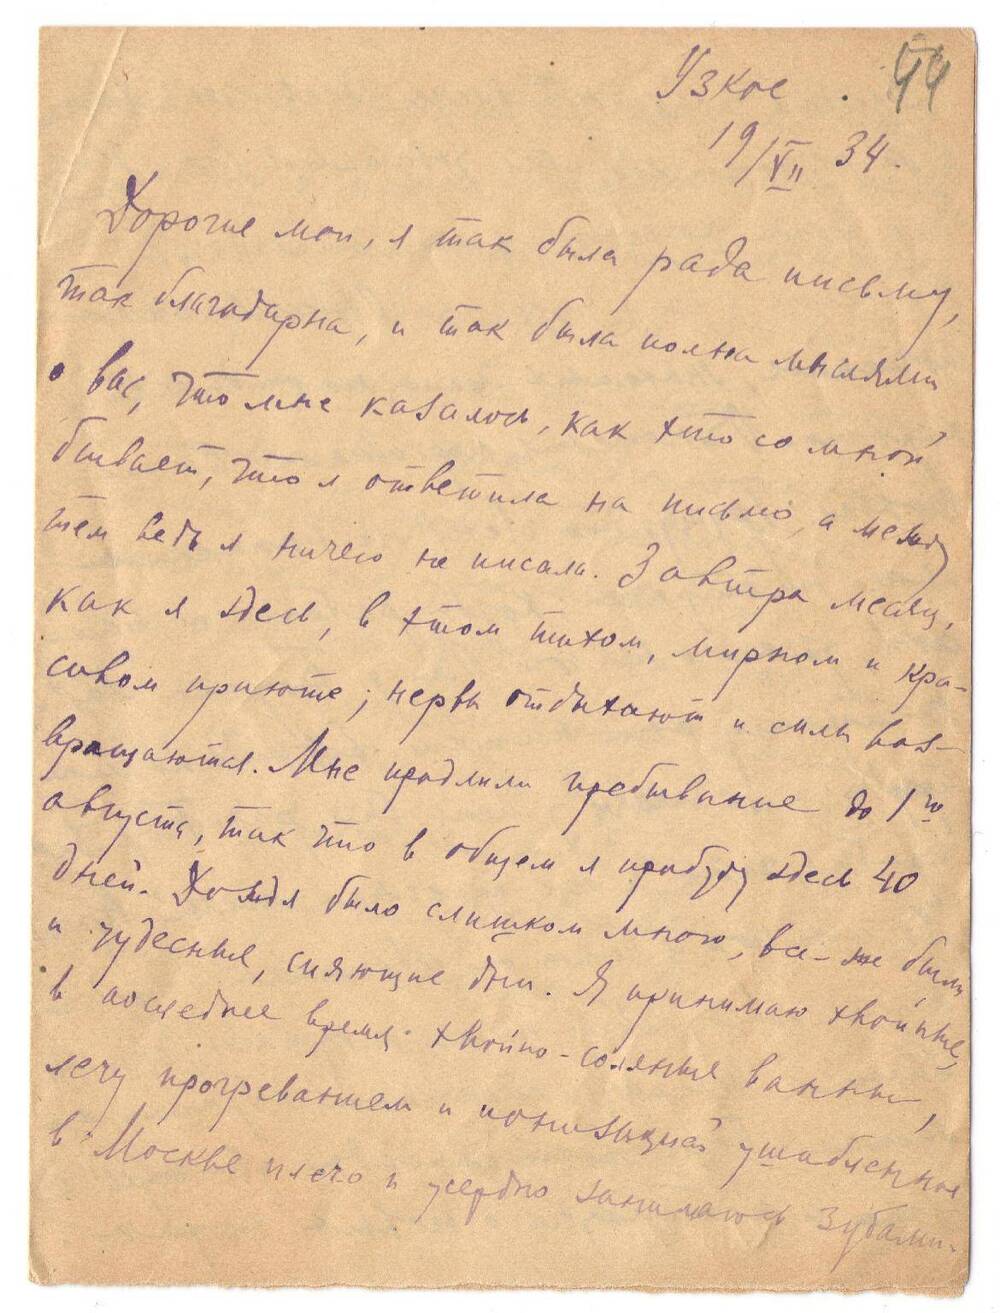 Узкое . 44
19/VII 34.
Дорогие мои, я так была рада письму,
так благодарна, и так была полна мыслями
о вас, что мне казалось, как это со мной
бывает, что я ответила на письмо, а между
тем ведь я ничего не писала. Завтра месяц,
как я здесь, в этом тихом, мирном и кра-
сивом приюте; нервы отдыхают и силы воз-
вращаются. Мне продлили пребывание до 1го
августа, так что в общем я пробуду здесь 40
дней. Дождя было слишком много, все-же были
и чудесные, сияющие дни. Я принимаю хвойные,
в последнее время хвойно-соляные ванны,
лечу прогреванием и ионизацией ушибленное
в Москве плечо и усердно занимаюсь зубами.